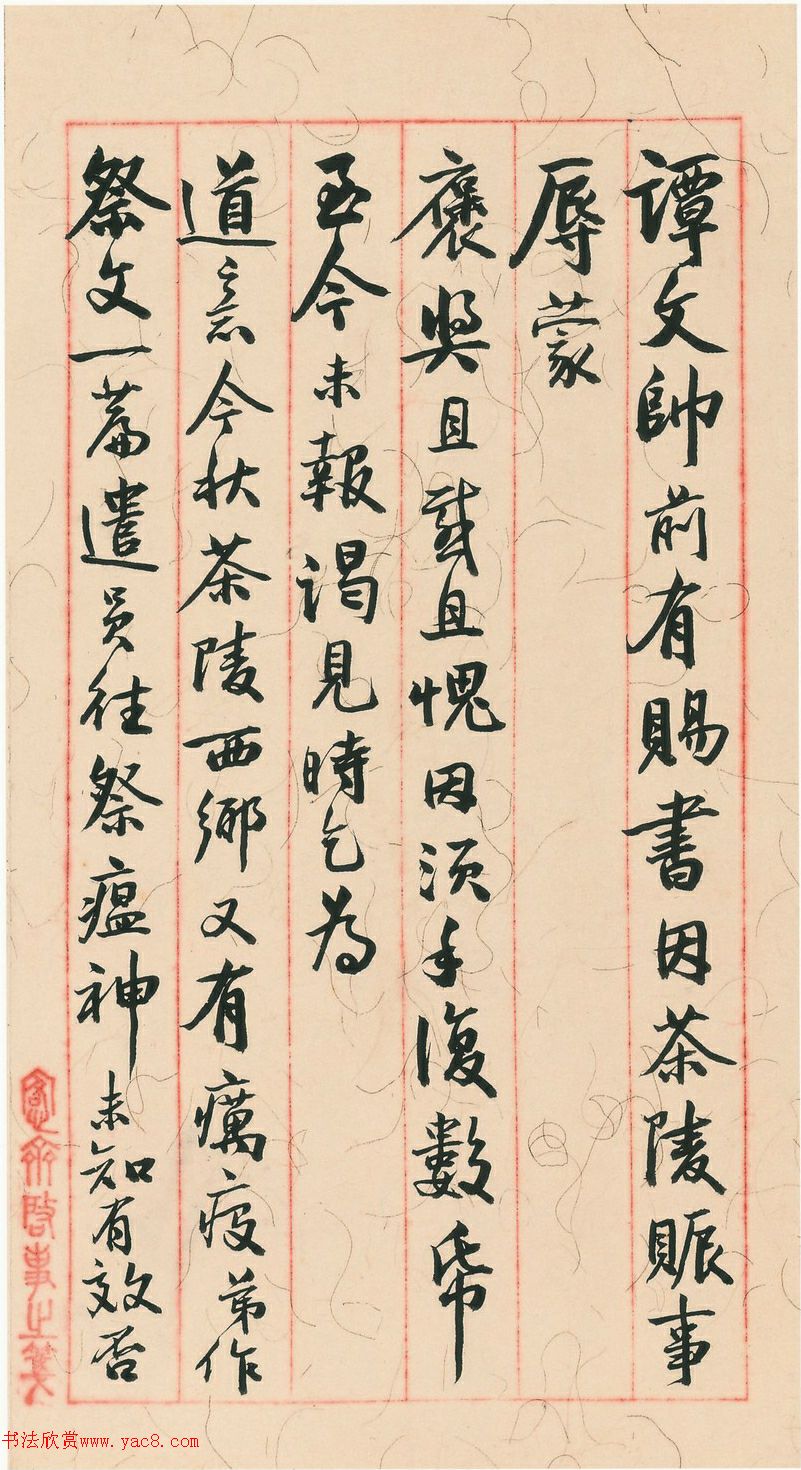 譚文帥前有賜書因茶陵賑事
辱蒙
褒奬且感且愧因須手復數帋
至今未報謁見時乞為
道意今秋茶陵西鄉又有癘疫弟作
祭文一篇遣員往祭瘟神未知有效否
愙齋啓事之箋
书法欣赏www.yac8.com